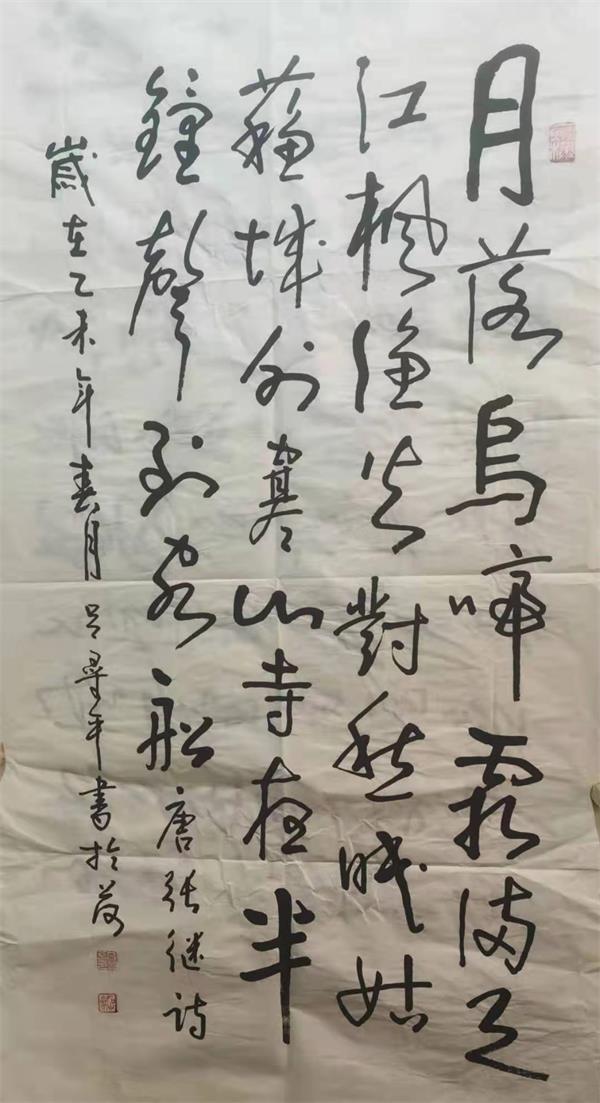 月落烏啼霜滿天
江楓漁火對愁眠姑
蘇城外寒山寺夜半
鐘聲到客船 唐張継詩
歲在乙未年春月吕星平書於